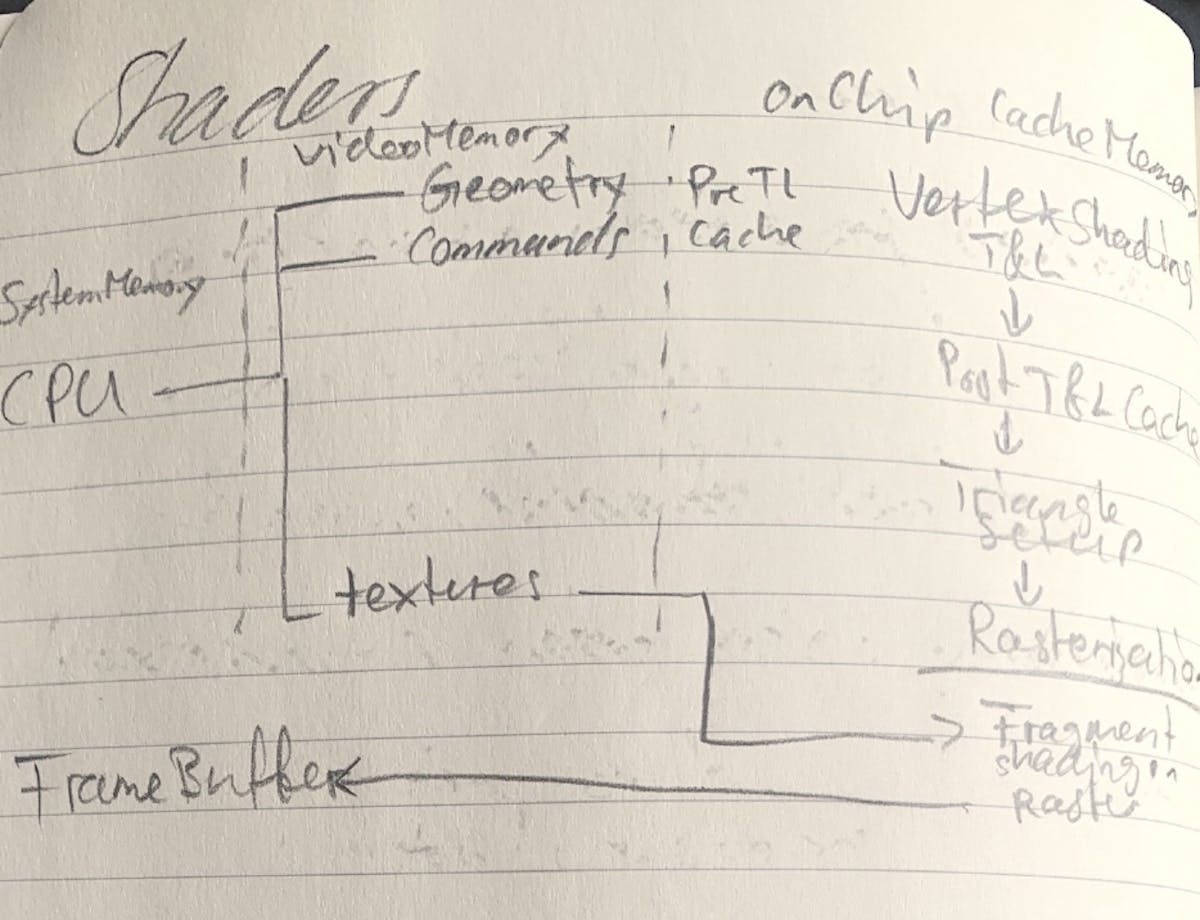 Shaders
onChip CacheMemory
VideoMemory
Geometry
PreTL
VertexShading
Commands
Cache
T&L
SystemMemory
CPU
Post T&L Cache
Triangle
Setup
textures
Rasterisation
Fragment
shading in
Raster
FrameBuffer